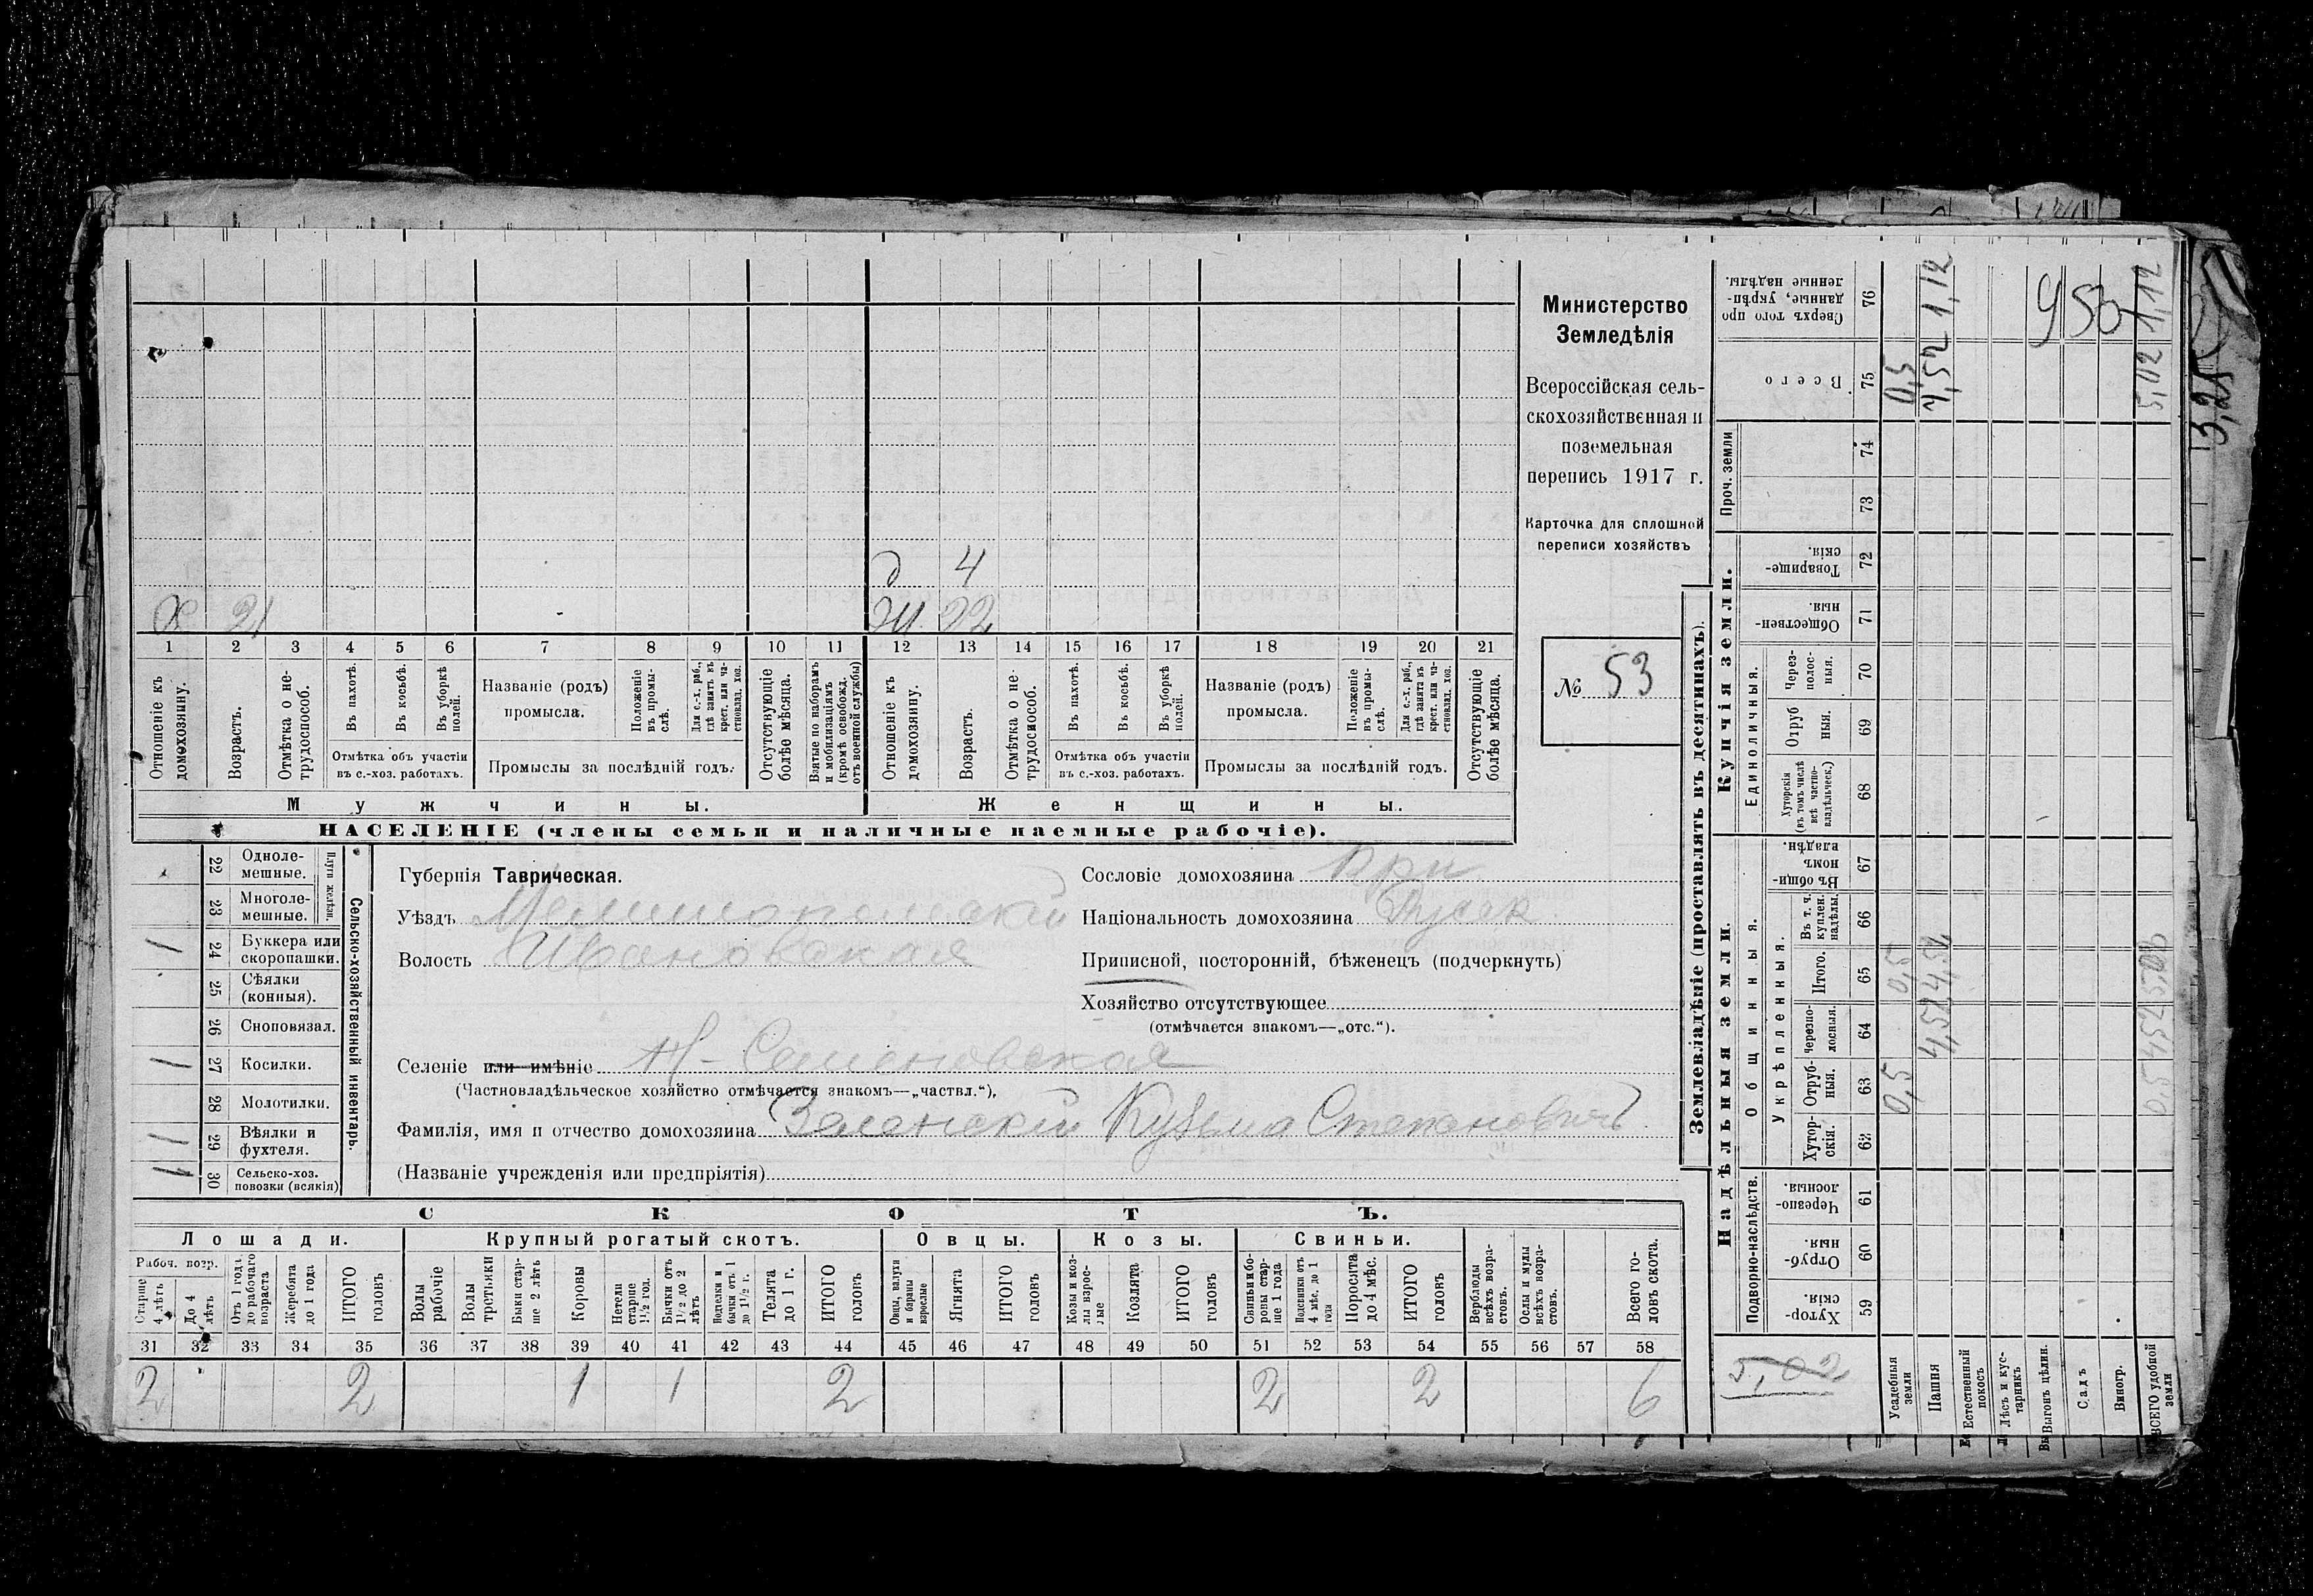 Министерство
Земледѣлія
Всероссійская сель-
скохозяйственная и
поземельная
перепись 1917 г.
Карточка для сплошной
переписи хозяйствъ
№ 53
д 4
Х 21
Ж. 22
1 2 3 4 5 6 7 8 9 10 11 12 13 14 15 16 17 18 19 20 21
Отношеніе къ домохозяину.
Возрастъ.
Отмѣтка о не-
трудоспособ.
Въ пахотѣ.
Въ косьбѣ.
Въ уборкѣ
полей.
Отмѣтка объ участіи
въ с.-хоз. работахъ.
Названіе (родъ)
промысла.
Положеніе
въ промы-
слѣ.
Для с.-х. раб.,
гдѣ занятъ въ
крест. или ча-
стновлад. хоз.
Промыслы за послѣдній годъ.
Отсутствующіе
болѣе мѣсяца.
Взятые по наборамъ
и мобилизаціямъ
(кромѣ освобожд.
отъ военной службы)
Отношеніе къ
домохозяину.
Возрастъ.
Отмѣтка о не-
трудоспособ.
Въ пахотѣ.
Въ косьбѣ.
Въ уборкѣ
полей.
Отмѣтка объ участіи
въ с.-хоз. работахъ.
Названіе (родъ)
промысла.
Положеніе
въ промы-
слѣ.
Для с.-х. раб.,
гдѣ занята въ
крест. или ча-
стновлад. хоз.
Промыслы за послѣдній годъ.
Отсутствующіе
болѣе мѣсяца.
Мужчины.
Женщины.
НАСЕЛЕНІЕ (члены семьи и наличные наемные рабочіе).
Сельско-хозяйственный инвентарь.
Плуги желѣзн.
22 Одноле-
мешные.
23 Многоле-
мешные.
1 24 Буккера или
скоропашки.
25 Сѣялки
(конныя).
26 Сноповязал.
1 27 Косилки.
28 Молотилки.
1 29 Вѣялки и
фухтеля.
1 30 Сельско-хоз.
повозки (всякія)
Губернія Таврическая.
Уѣздъ Мелитопольскій
Волость Ивановская
Сословіе домохозяина
Національность домохозяина
Приписной, посторонній, бѣженецъ (подчеркнуть)
Хозяйство отсутствующее
(отмѣчается знакомъ—„отс.“).
Селеніе или имѣніе Н-Семеновская
(Частновладѣльческое хозяйство отмѣчается знакомъ—„частвл.“),
Фамилія, имя и отчество домохозяина Зеленскій Кузьма Степановичъ
(Названіе учрежденія или предпріятія)
СКОТЪ.
Лошади. Крупный рогатый скотъ. Овцы. Козы. Свиньи.
Рабоч. возр.
Старше
4 лѣтъ
До 4
лѣтъ
Отъ 1 года
до рабочаго
возраста
Жеребята
до 1 года
ИТОГО
головъ
Волы
рабочіе
Волы
третьяки
Быки стар-
ше 2 лѣтъ
Коровы
Нетели
старше
1½ год.
Бычки отъ
1½ до 2
лѣтъ
Подтелки и
бычки отъ 1
до 1½ г.
Телята
до 1 г.
ИТОГО
головъ
Овцы, валухи
и бараны
взрослые
Ягнята
ИТОГО
головъ
Козы и коз-
лы взрос-
лые
Козлята
ИТОГО
головъ
Свиньи и бо-
ровы стар-
ше 1 года
Подсвинки отъ
4 мѣс. до 1
года
Поросята
до 4 мѣс.
ИТОГО
головъ
Верблюды
всѣхъ возра-
стовъ.
Ослы и мулы
всѣхъ возра-
стовъ.
Всего го-
ловъ скота.
31 32 33 34 35 36 37 38 39 40 41 42 43 44 45 46 47 48 49 50 51 52 53 54 55 56 57 58
2 2 1 1 2 2 2 6
Землевладѣніе (проставлять въ десятинахъ).
Сверхъ того про
данные, укрѣп-
ленные надѣлы. 76
Всего 75
Проч. земли
74
73
Купчія земли.
Товарище-
скія. 72
Обществен-
ныя. 71
Единоличныя.
Через-
полос-
ныя. 70
Отруб
ныя. 69
Хуторскія
(въ томъ числѣ
всѣ частно-
владѣльческ.) 68
Надѣльныя земли.
Общинныя.
Въ общи
номъ
владѣн. 67
Укрѣпленныя.
Въ т. ч.
куплен.
надѣлы 66
Итого. 65
Черезпо-
лосныя. 64
Отруб-
ныя. 63
Хутор-
скія. 62
Подворно-наслѣдств.
Черезпо-
лосныя. 61
Отруб-
ныя. 60
Хутор-
скія. 59
Усадебныя
земли
Пашня
Естественный
покосъ
Лѣсъ и кус-
тарникъ
Выгонъ цѣлин.
Садъ
Виногр.
ВСЕГО удобной
земли
0,5 0,5 0,5
4,52 4,52 4,52 1,12
0,5 4,52 5,02 5,02 1,12
5,02